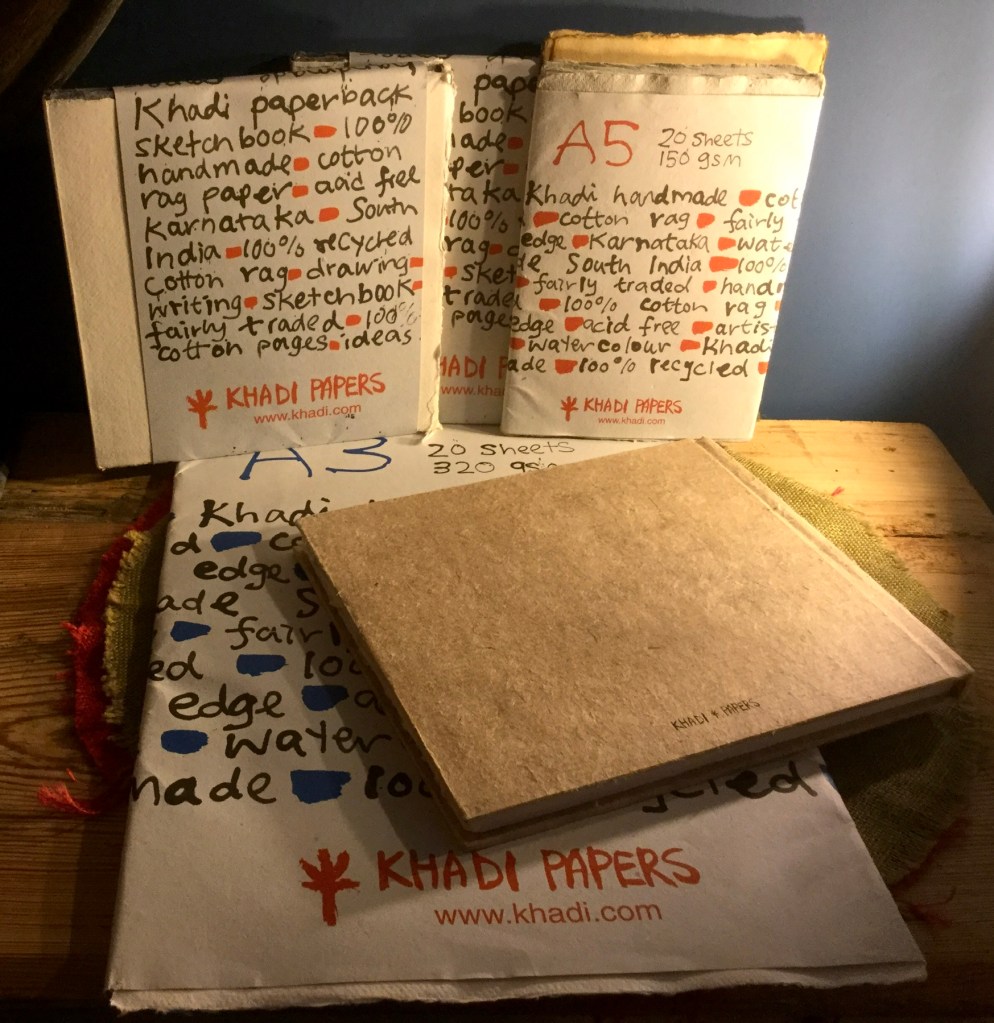 Khadi paperback
sketchbook 100%
handmade cotton
rag paper acid free
Karnataka South
India 100% recycled
cotton rag drawing
writing sketchbook
fairly traded 100%
cotton pages ideas
KHADI PAPERS
www.khadi.com
pape
book
ade
per
taka
100%
rag d
sket
traded
pages
HADI P
www.kh
A5 20 Sheets
150 gsm
Khadi handmade cot
cotton rag fairly
edge Karnataka wate
de South India 100%
fairly traded hand
100% cotton rag
edge acid free artis
watercolour Khadi
ade 100% recycled
KHADI PAPERS
www.khadi.com
A3 20 Sheets
320 gsm
Khadi
d co
edge
ade S
fairl
ed 100
edge a
water
made 100 ycled
KHADI PAPERS
www.khadi.com
KHADI PAPERS